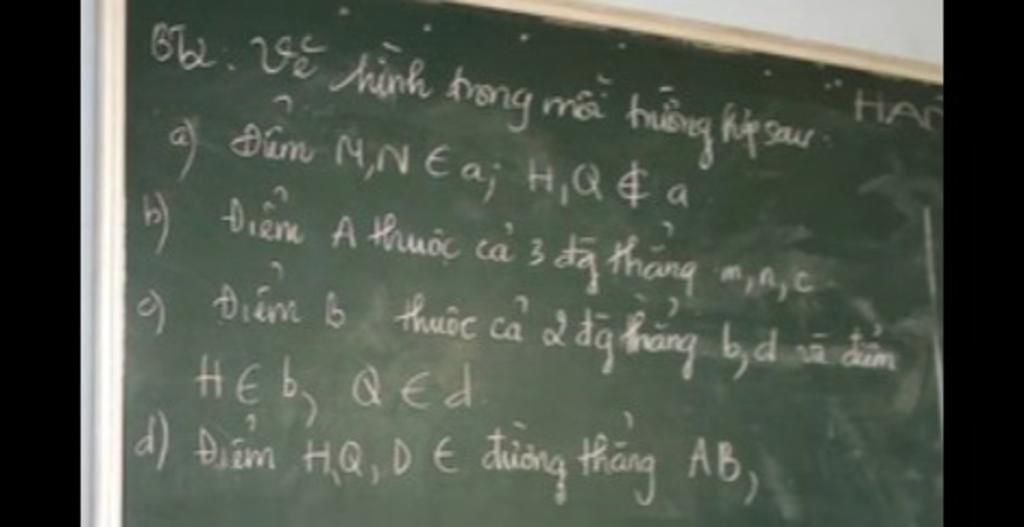 Bt2: Vẽ hình trong mỗi trường hợp sau.
HAN
a) Điểm M, N ∈ a; H, Q ∉ a
b) Điểm A thuộc cả 3 đg thẳng m, n, c
c) Điểm b thuộc cả 2 đg thẳng b, d và điểm
H ∈ b, Q ∈ d
d) Điểm H, Q, D ∈ đường thẳng AB,